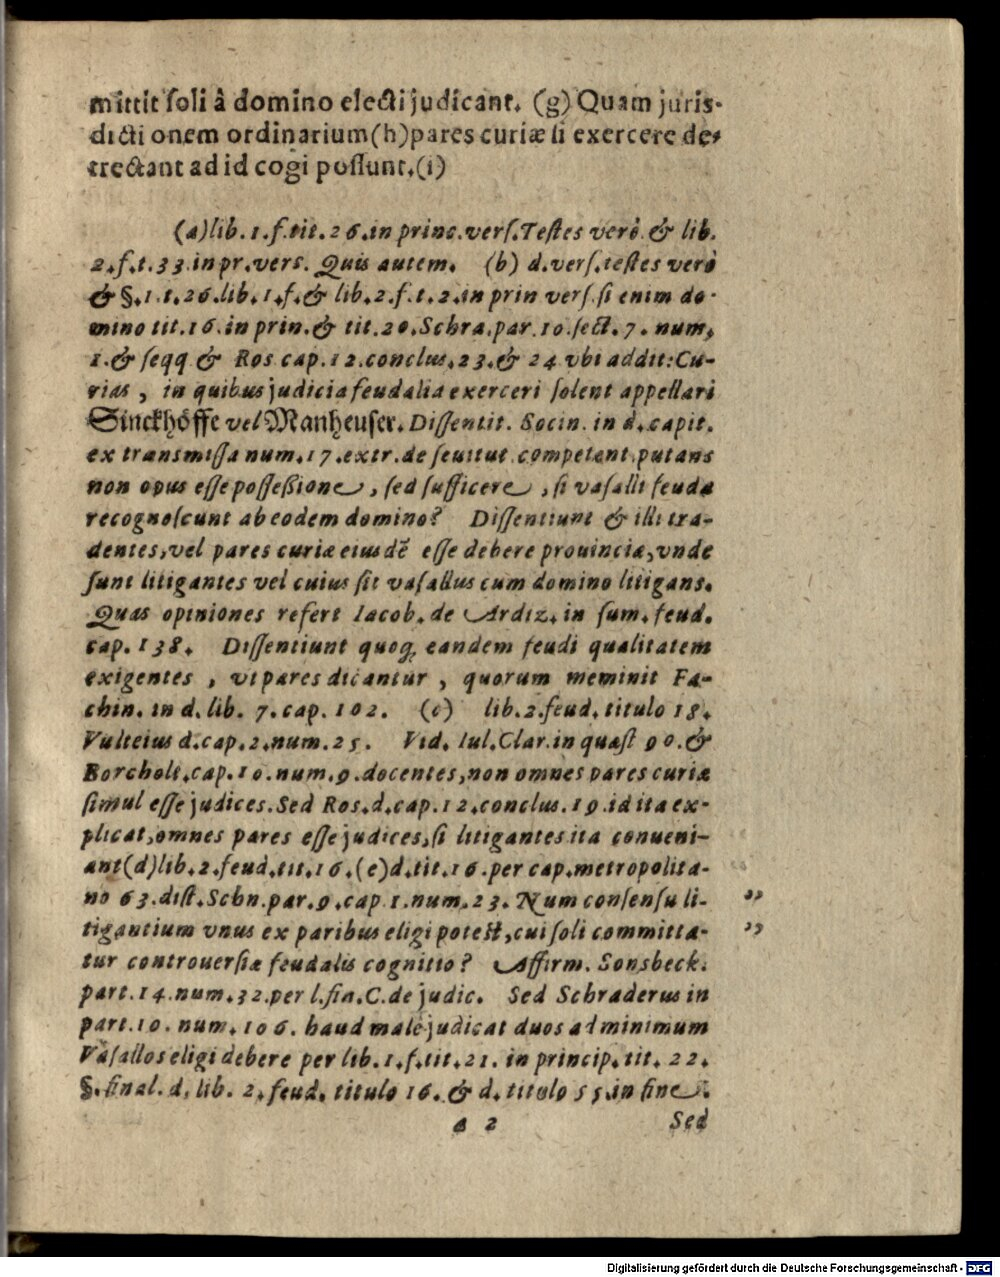 mittit ſoli â domino electi judicant. (g) Quam juris-
dicti onem ordinarium (h) pares curiæ ſi exercere de-
trectant ad id cogi poſſunt. (i)
(a) lib. 1. f. tit. 26. in princ. verſ. Teſtes verò & lib.
2. f. t. 33. in pr. vers. Quis autem. (b) d. verſ. teſtes verò
& §. 1. t. 26. lib. 1. f. & lib. 2. f. t. 2. in prin verſ. ſi enim do-
mino tit. 16. in prin. & tit. 20. Schra. par. 10. ſect. 7. num.
1. & ſeqq & Ros cap. 12. concluſ. 23. & 24 vbi addit: Cu-
rias, in quibus judicia feudalia exerceri ſolent appellari
Sinckhöffe vel Manheuser. Diſſentit. Socin. in d. capit.
ex transmiſſa num. 17. extr. de feuitut competent. putans
non opus eſſe poſſeßione, ſed ſufficere, ſi vaſalli feuda
recognoſcunt ab eodem domino? Diſſentiunt & illi tra-
dentes, vel pares curiæ eiusdē eſſe debere prouinciæ, vnde
ſunt litigantes vel cuius ſit vaſallus cum domino litigans.
Quas opiniones refert Iacob. de Ardiz. in ſum. feud.
cap. 138. Diſſentiunt quoq; eandem feudi qualitatem
exigentes, vt pares dicantur, quorum meminit Fa-
chin. in d. lib. 7. cap. 102. (c) lib. 2. feud. titulo 18.
Vulteius d. cap. 2. num. 25. Vid. Iul. Clar. in quæſt 90. &
Borcholt. cap. 10. num. 9. docentes, non omnes pares curiæ
ſimul eſſe judices. Sed Ros. d. cap. 12. conclus. 19. id ita ex-
plicat, omnes pares eſſe judices, ſi litigantes ita conueni-
ant (d) lib. 2. feud. tit. 16. (e) d. tit. 16. per cap. metropolita-
no 63. diſt. Schn. par. 9. cap 1. num. 23. Num conſenſu li- ”
tigantium vnus ex paribus eligi poteſt, cui ſoli committa- ”
tur controuerſiæ feudalis cognitio? Affirm. Sonsbeck.
part. 14. num. 32. per l. fin. C. de judic. Sed Schraderus in
part. 10. num. 106. haud malè judicat duos ad minimum
Vaſallos eligi debere per lib. 1. f. tit. 21. in princip. tit. 22.
§. final. d. lib. 2. feud. titulo 16. & d. titulo 55. in fine.
a 2 Sed
Digitalisierung gefördert durch die Deutsche Forschungsgemeinschaft - DFG